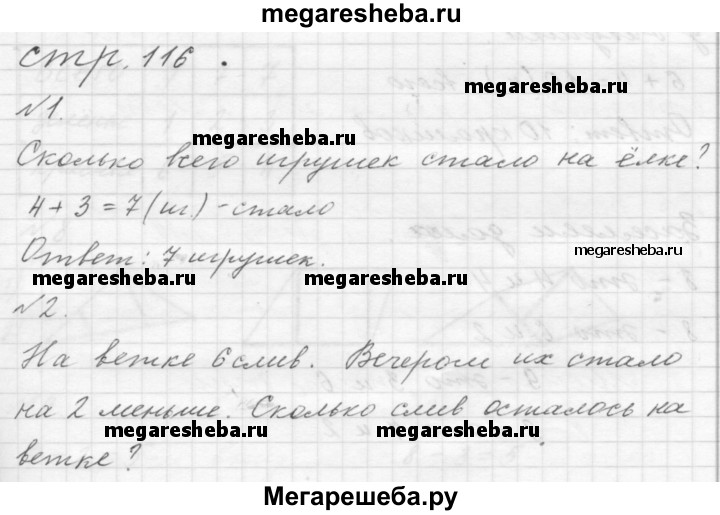 megaresheba.ru
стр. 116.
megaresheba.ru
№1.
megaresheba.ru
Сколько всего игрушек стало на ёлке?
4 + 3 = 7 (иг.) - стало
megaresheba.ru
Ответ: 7 игрушек.
megaresheba.ru megaresheba.ru
№2.
На ветке 6 слив. Вечером их стало
на 2 меньше. Сколько слив осталось на
megaresheba.ru megaresheba.ru
ветке?
Мегарешеба.ру